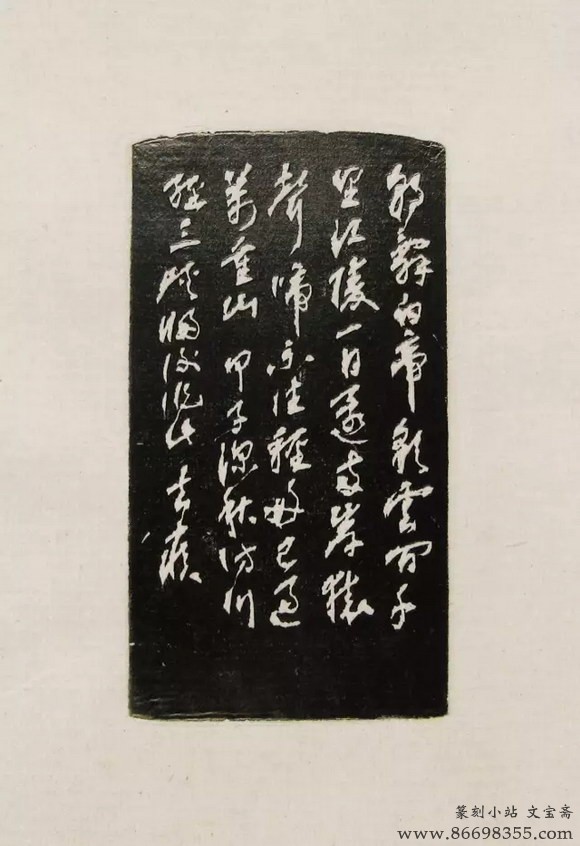 朝辭白帝彩雲間千
里江陵一日還兩岸猿
聲啼不住輕舟已過
萬重山 甲子深秋訪川
經三峽歸後記此 去疾
篆刻小站 文宝斋
www.86698355.com